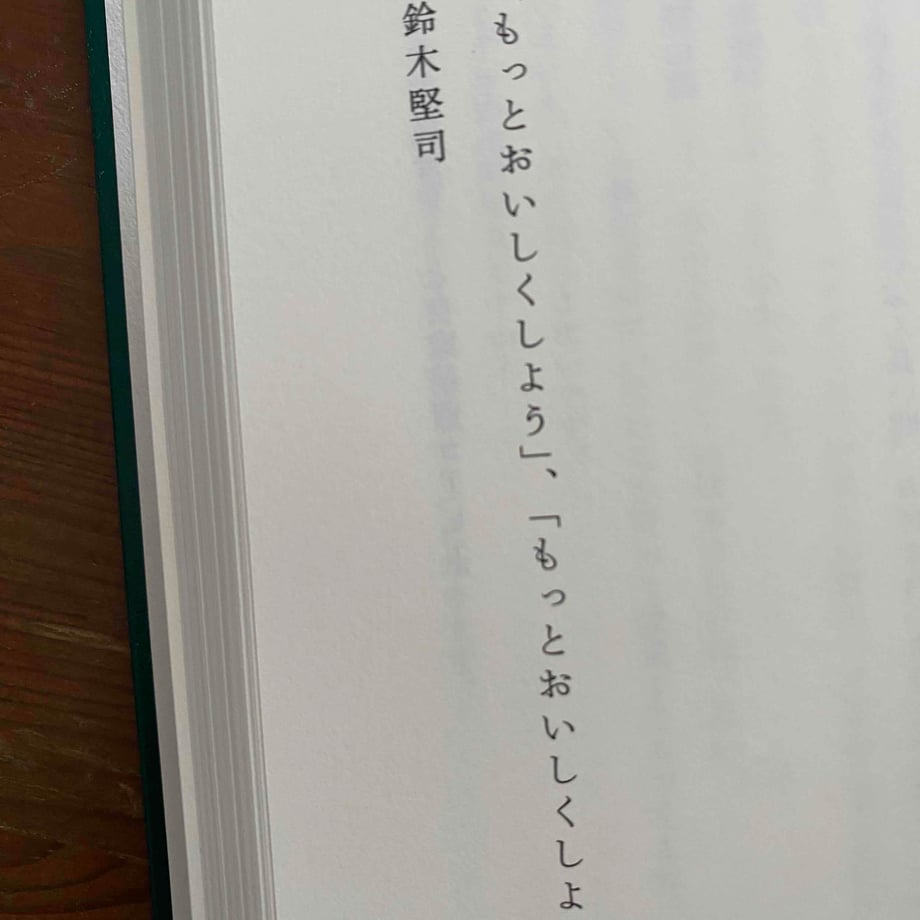 もっとおいしくしよう」、「もっとおいしくしよ
鈴木堅司